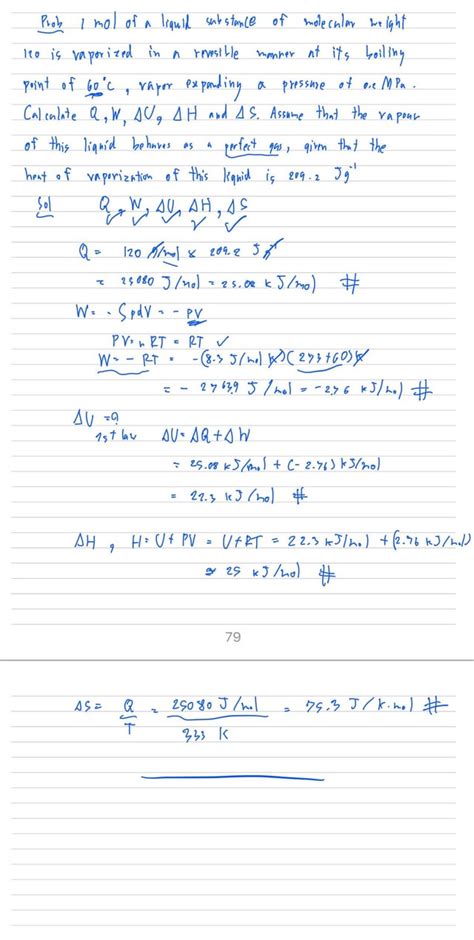 Prob 1 mol of a liquid substance of molecular weight
120 is vaporized in a reversible manner at its boiling
point of 60°C, vapor expanding a pressure of 0.1 MPa.
Calculate Q, W, ΔU, ΔH and ΔS. Assume that the vapour
of this liquid behaves as a perfect gas, given that the
heat of vaporization of this liquid is 209.2 Jg⁻¹
Sol Q, W, ΔU, ΔH, ΔS
Q = 120 g/mol × 209.2 J/g
= 25080 J/mol = 25.08 kJ/mol #
W = - ∫pdV = - PV
PV = nRT = RT ✓
W = - RT = -(8.3 J/mol K)(273+60)K
= - 2763.9 J/mol = -2.76 kJ/mol #
ΔU = ?
1st law ΔU = ΔQ + ΔW
= 25.08 kJ/mol + (-2.76) kJ/mol
= 22.3 kJ/mol #
ΔH, H = U + PV = U + RT = 22.3 kJ/mol + (2.76 kJ/mol)
≈ 25 kJ/mol #
79
ΔS = Q/T = 25080 J/mol / 333 K = 75.3 J/K·mol #